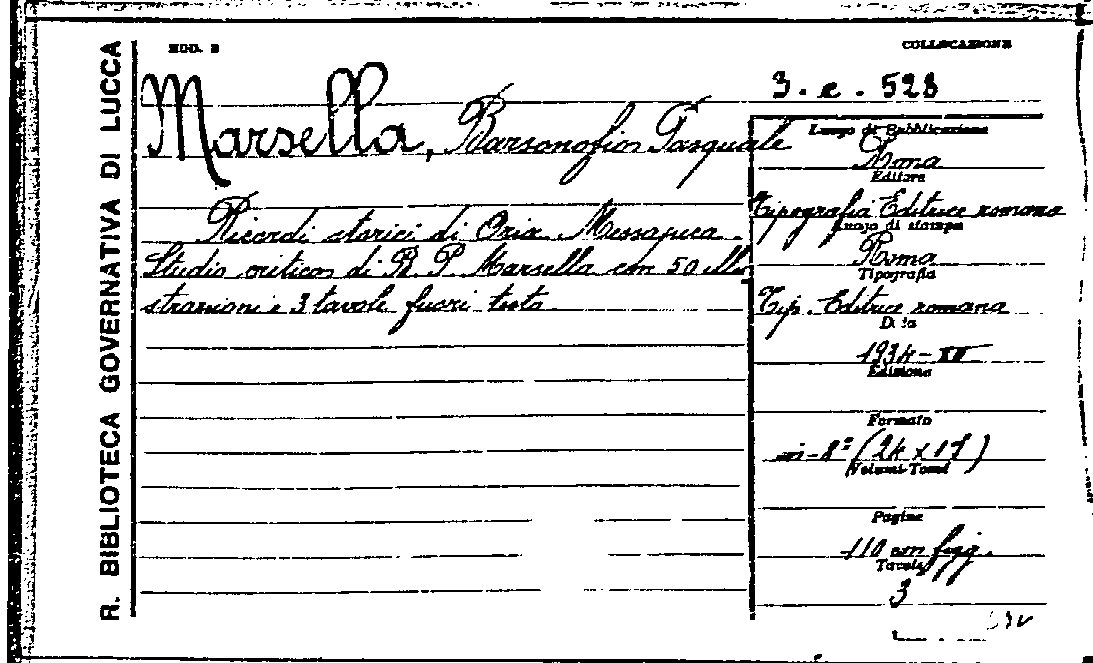 R. BIBLIOTECA GOVERNATIVA DI LUCCA
MOD. B
COLLOCAZIONE
3. e. 528
Marsella, Barsonofio Pasquale
Ricordi storici di Oria Messapica.
Studio critico di B. P. Marsella con 50 illu
strazioni e 3 tavole fuori testo
Luogo di Pubblicazione
Roma
Editore
Tipografia Editrice romana
Luogo di stampa
Roma
Tipografia
Tip. Editrice romana
Data
1934-XII
Edizione
Formato
in-8º (24 x 17)
Volumi-Tomi
Pagine
110 con figg.
Tavole
3